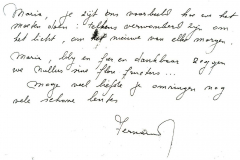 Maria, je zijt ons voorbeeld hoe we het
moeten doen telkens verwonderd zijn om
het licht, om het nieuwe van elke morgen.
Maria, blij en fier en dankbaar zeggen
we
Moge veel liefde je omringen nog
vele schone lentes
Fernand